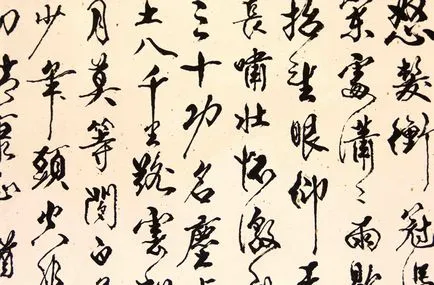 怒髮衝冠
闌處瀟〻雨歇
抬望眼仰天
長嘯壯懷激
三十功名塵
土八千里路雲
月莫等閒白
少年頭空